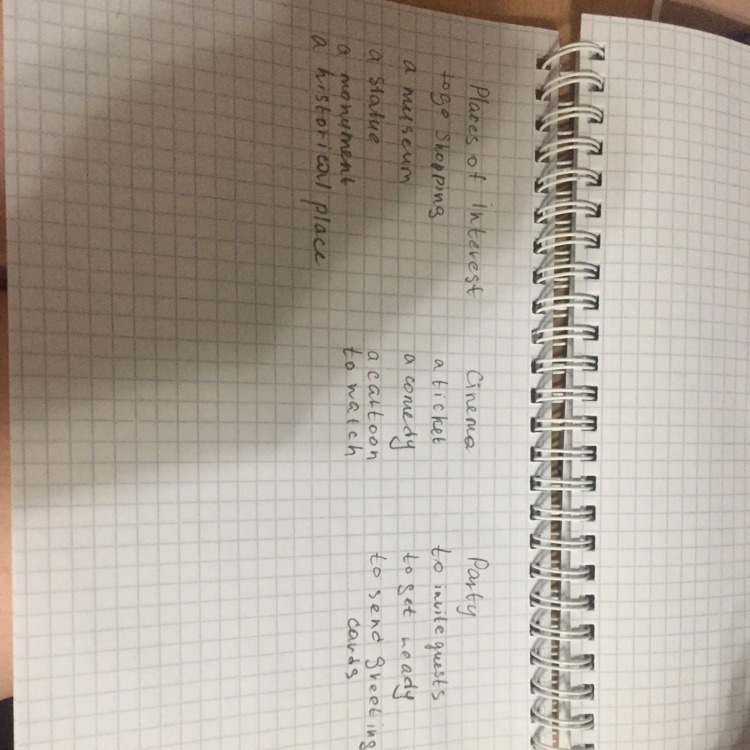 Places of interest
to go shopping
a museum
a statue
a monument
a historical place
Cinema
a ticket
a comedy
a cartoon
to watch
Party
to invite guests
to get ready
to send greeting
cards